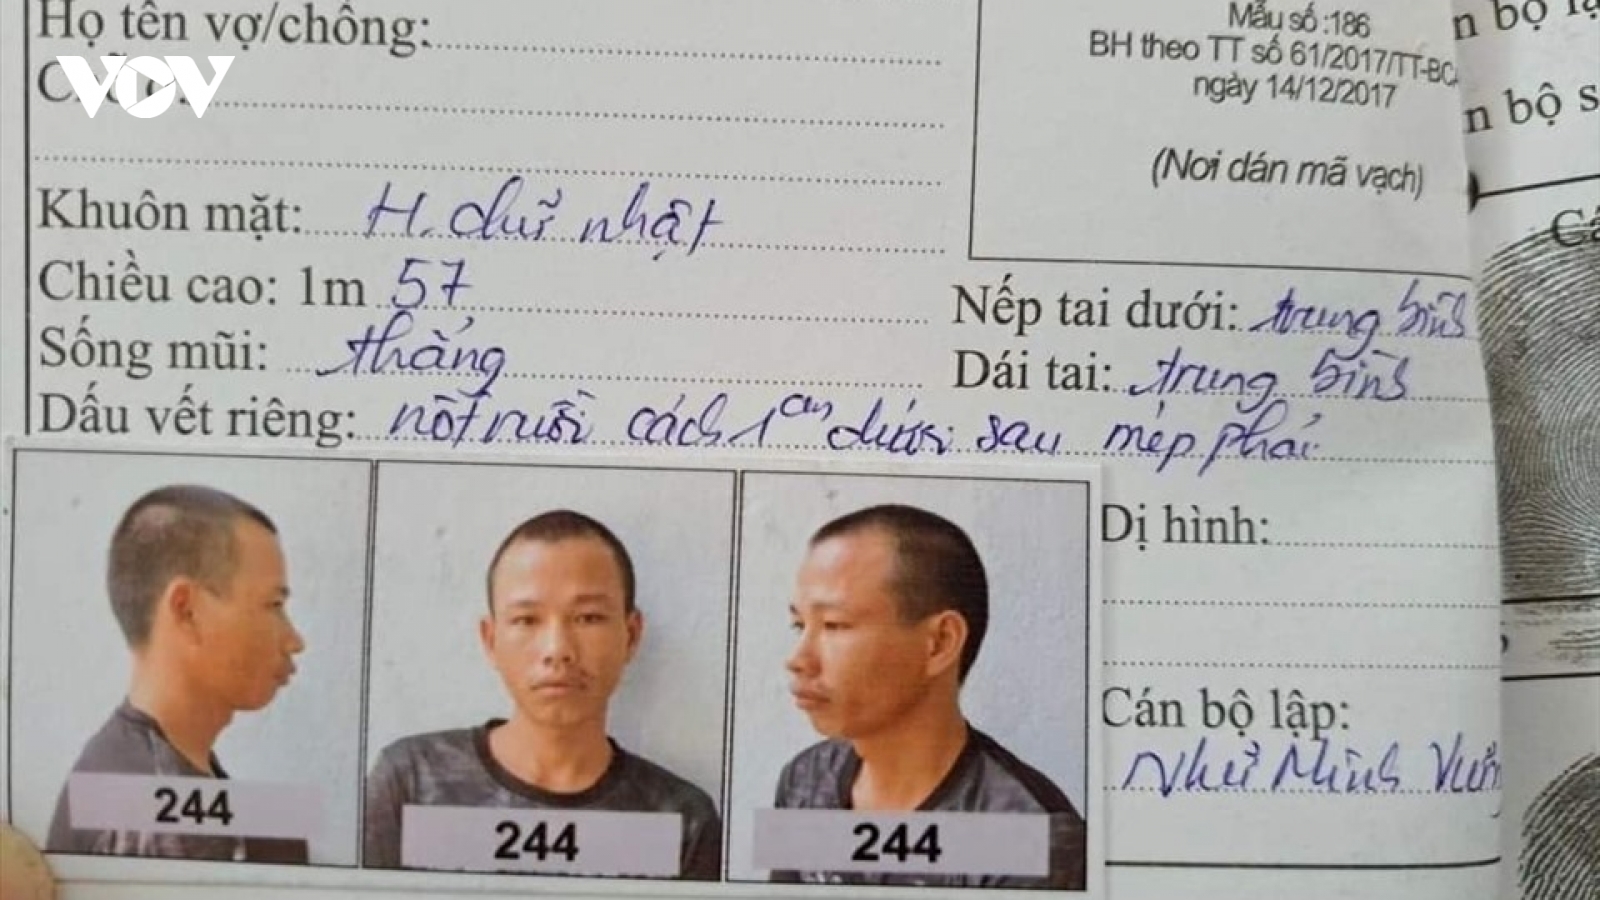 Họ tên vợ/chồng:
VOV
Mẫu số :186
BH theo TT số 61/2017/TT-BC
ngày 14/12/2017
(Nơi dán mã vạch)
n bộ
n bộ s
Khuôn mặt: H. chữ nhật
Chiều cao: 1m 57
Nếp tai dưới: trung bình
Sống mũi: thẳng
Dái tai: trung bình
Dấu vết riêng: nốt ruồi cách 1cm dưới sau mép phải
Dị hình:
Cán bộ lập:
Như Minh
244
244
244